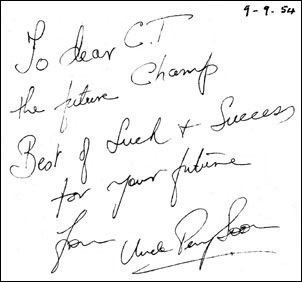 9-9.54
To dear C.T
the future Champ
Best of Luck + Success
for your future
from Uncle Peng Soon